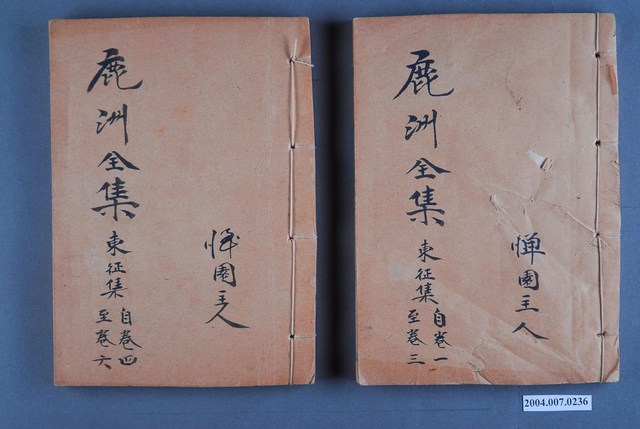 憚園主人
鹿洲全集 東征集
自卷一
至卷三
園主人
鹿洲全集 東征集
自卷四
至卷六
2004.007.0236